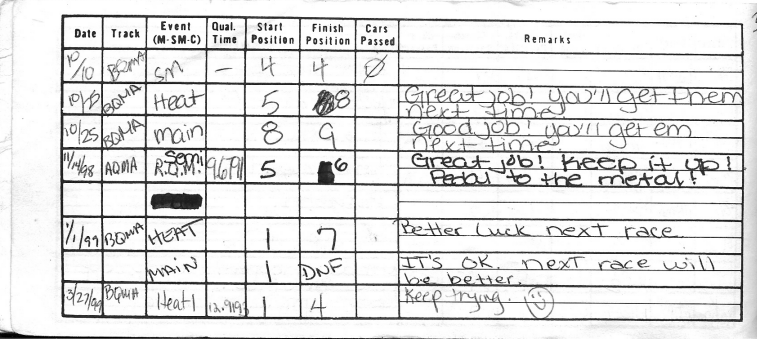 Date Track Event (M-SM-C) Qual. Time Start Position Finish Position Cars Passed Remarks
10/10 BQMA SM — 4 4 Ø
10/25 BQMA Heat 5 8 Great job! you'll get them
next time.
10/25 BQMA main 8 9 Good job! you'll get em
next time.
11/14/98 AQMA Semi R.Q.M. 9.6791 5 6 Great job! Keep it up!
Pedal to the metal!
1/1/99 BQMA HEAT 1 7 Better Luck next race.
MAIN 1 DNF IT'S OK. next race will
be better.
3/27/99 BQMA Heat 1 12.9193 1 4 Keep trying. ☺